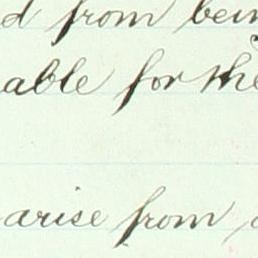 d from bein
able for the
arise from